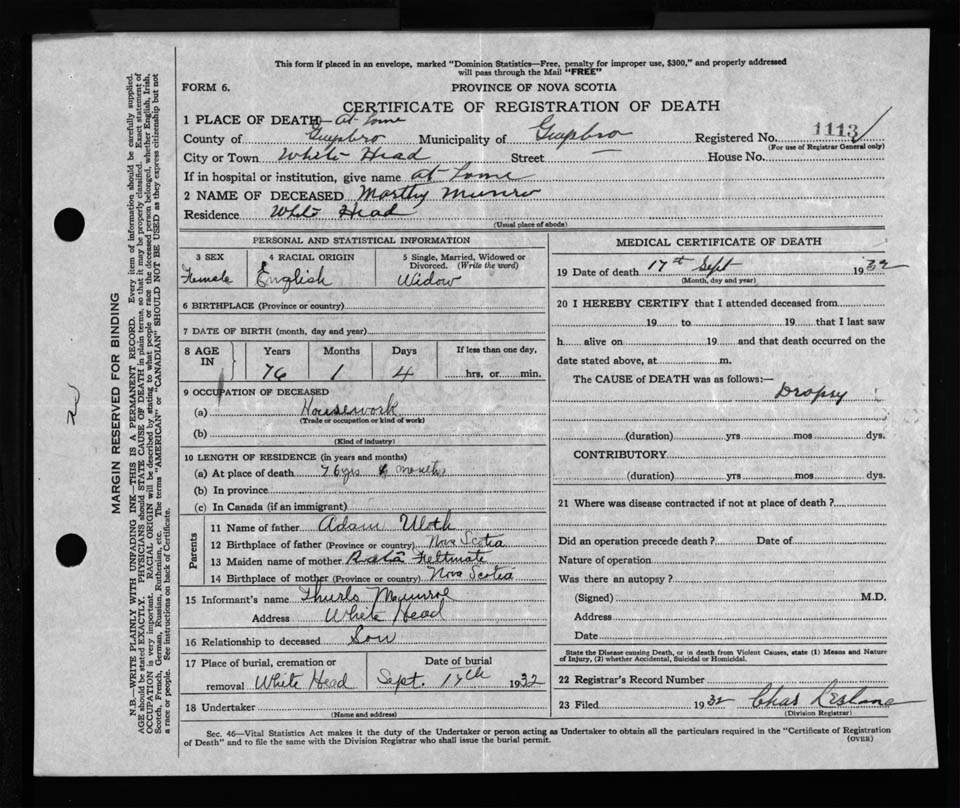 This form if placed in an envelope, marked "Dominion Statistics—Free, penalty for improper use, $300," and properly addressed
will pass through the Mail "FREE"
FORM 6.
PROVINCE OF NOVA SCOTIA
CERTIFICATE OF REGISTRATION OF DEATH
1 PLACE OF DEATH— at Home
County of Guysbro Municipality of Guysbro Registered No. 1113
(For use of Registrar General only)
City or Town White Head Street — House No.
If in hospital or institution, give name at Home
2 NAME OF DECEASED Munro
Residence White Head
(Usual place of abode)
PERSONAL AND STATISTICAL INFORMATION
3 SEX 4 RACIAL ORIGIN 5 Single, Married, Widowed or
Divorced. (Write the word)
Female English Widow
6 BIRTHPLACE (Province or country)
7 DATE OF BIRTH (month, day and year)
8 AGE IN Years Months Days If less than one day,
76 1 4 hrs. or min.
9 OCCUPATION OF DECEASED
(a) Housework
(Trade or occupation or kind of work)
(b)
(Kind of industry)
10 LENGTH OF RESIDENCE (in years and months)
(a) At place of death 76 yrs month
(b) In province
(c) In Canada (if an immigrant)
Parents
11 Name of father Adam Uloth
12 Birthplace of father (Province or country) Nova Scotia
13 Maiden name of mother Feltmate
14 Birthplace of mother (Province or country) Nova Scotia
15 Informant's name Munroe
Address White Head
16 Relationship to deceased Son
17 Place of burial, cremation or Date of burial
removal White Head Sept. 19th 1932
18 Undertaker
(Name and address)
MEDICAL CERTIFICATE OF DEATH
19 Date of death 17th Sept 1932
(Month, day and year)
20 I HEREBY CERTIFY that I attended deceased from
19 to 19 that I last saw
h alive on 19 and that death occurred on the
date stated above, at m.
The CAUSE of DEATH was as follows:—
Dropsy
(duration) yrs mos dys.
CONTRIBUTORY
(duration) yrs mos dys.
21 Where was disease contracted if not at place of death?
Did an operation precede death? Date of
Nature of operation
Was there an autopsy?
(Signed) M.D.
Address
Date
State the Disease causing Death, or in death from Violent Causes, state (1) Means and Nature
of Injury, (2) whether Accidental, Suicidal or Homicidal.
22 Registrar's Record Number
23 Filed 1932 Chas
(Division Registrar)
Sec. 46—Vital Statistics Act makes it the duty of the Undertaker or person acting as Undertaker to obtain all the particulars required in the "Certificate of Registration
of Death" and to file the same with the Division Registrar who shall issue the burial permit. (OVER)
MARGIN RESERVED FOR BINDING
N.B.—WRITE PLAINLY WITH UNFADING INK—THIS IS A PERMANENT RECORD. Every item of information should be carefully supplied.
AGE should be stated EXACTLY. PHYSICIANS should STATE CAUSE OF DEATH in plain terms, so that it may be properly classified. Exact statement of
OCCUPATION is very important. RACIAL ORIGIN will be described by stating to what people or race the deceased person belonged, whether English, Irish,
Scotch, French, German, Russian, Ruthenian, etc. The terms "AMERICAN" or "CANADIAN" SHOULD NOT BE USED as they express citizenship but not
a race or people. See instructions on back of Certificate.